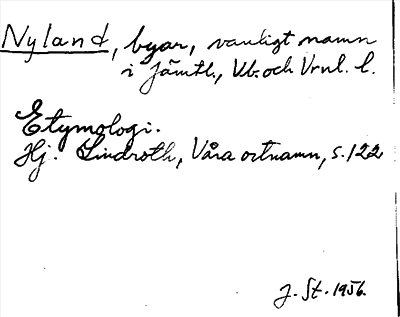 Nyland, byar, vanligt namn
i Jämtl., Vb. och Vrnl. l.
Etymologi.
Hj. Lindroth, Våra ortnamn, s. 122
J. St. 1956.